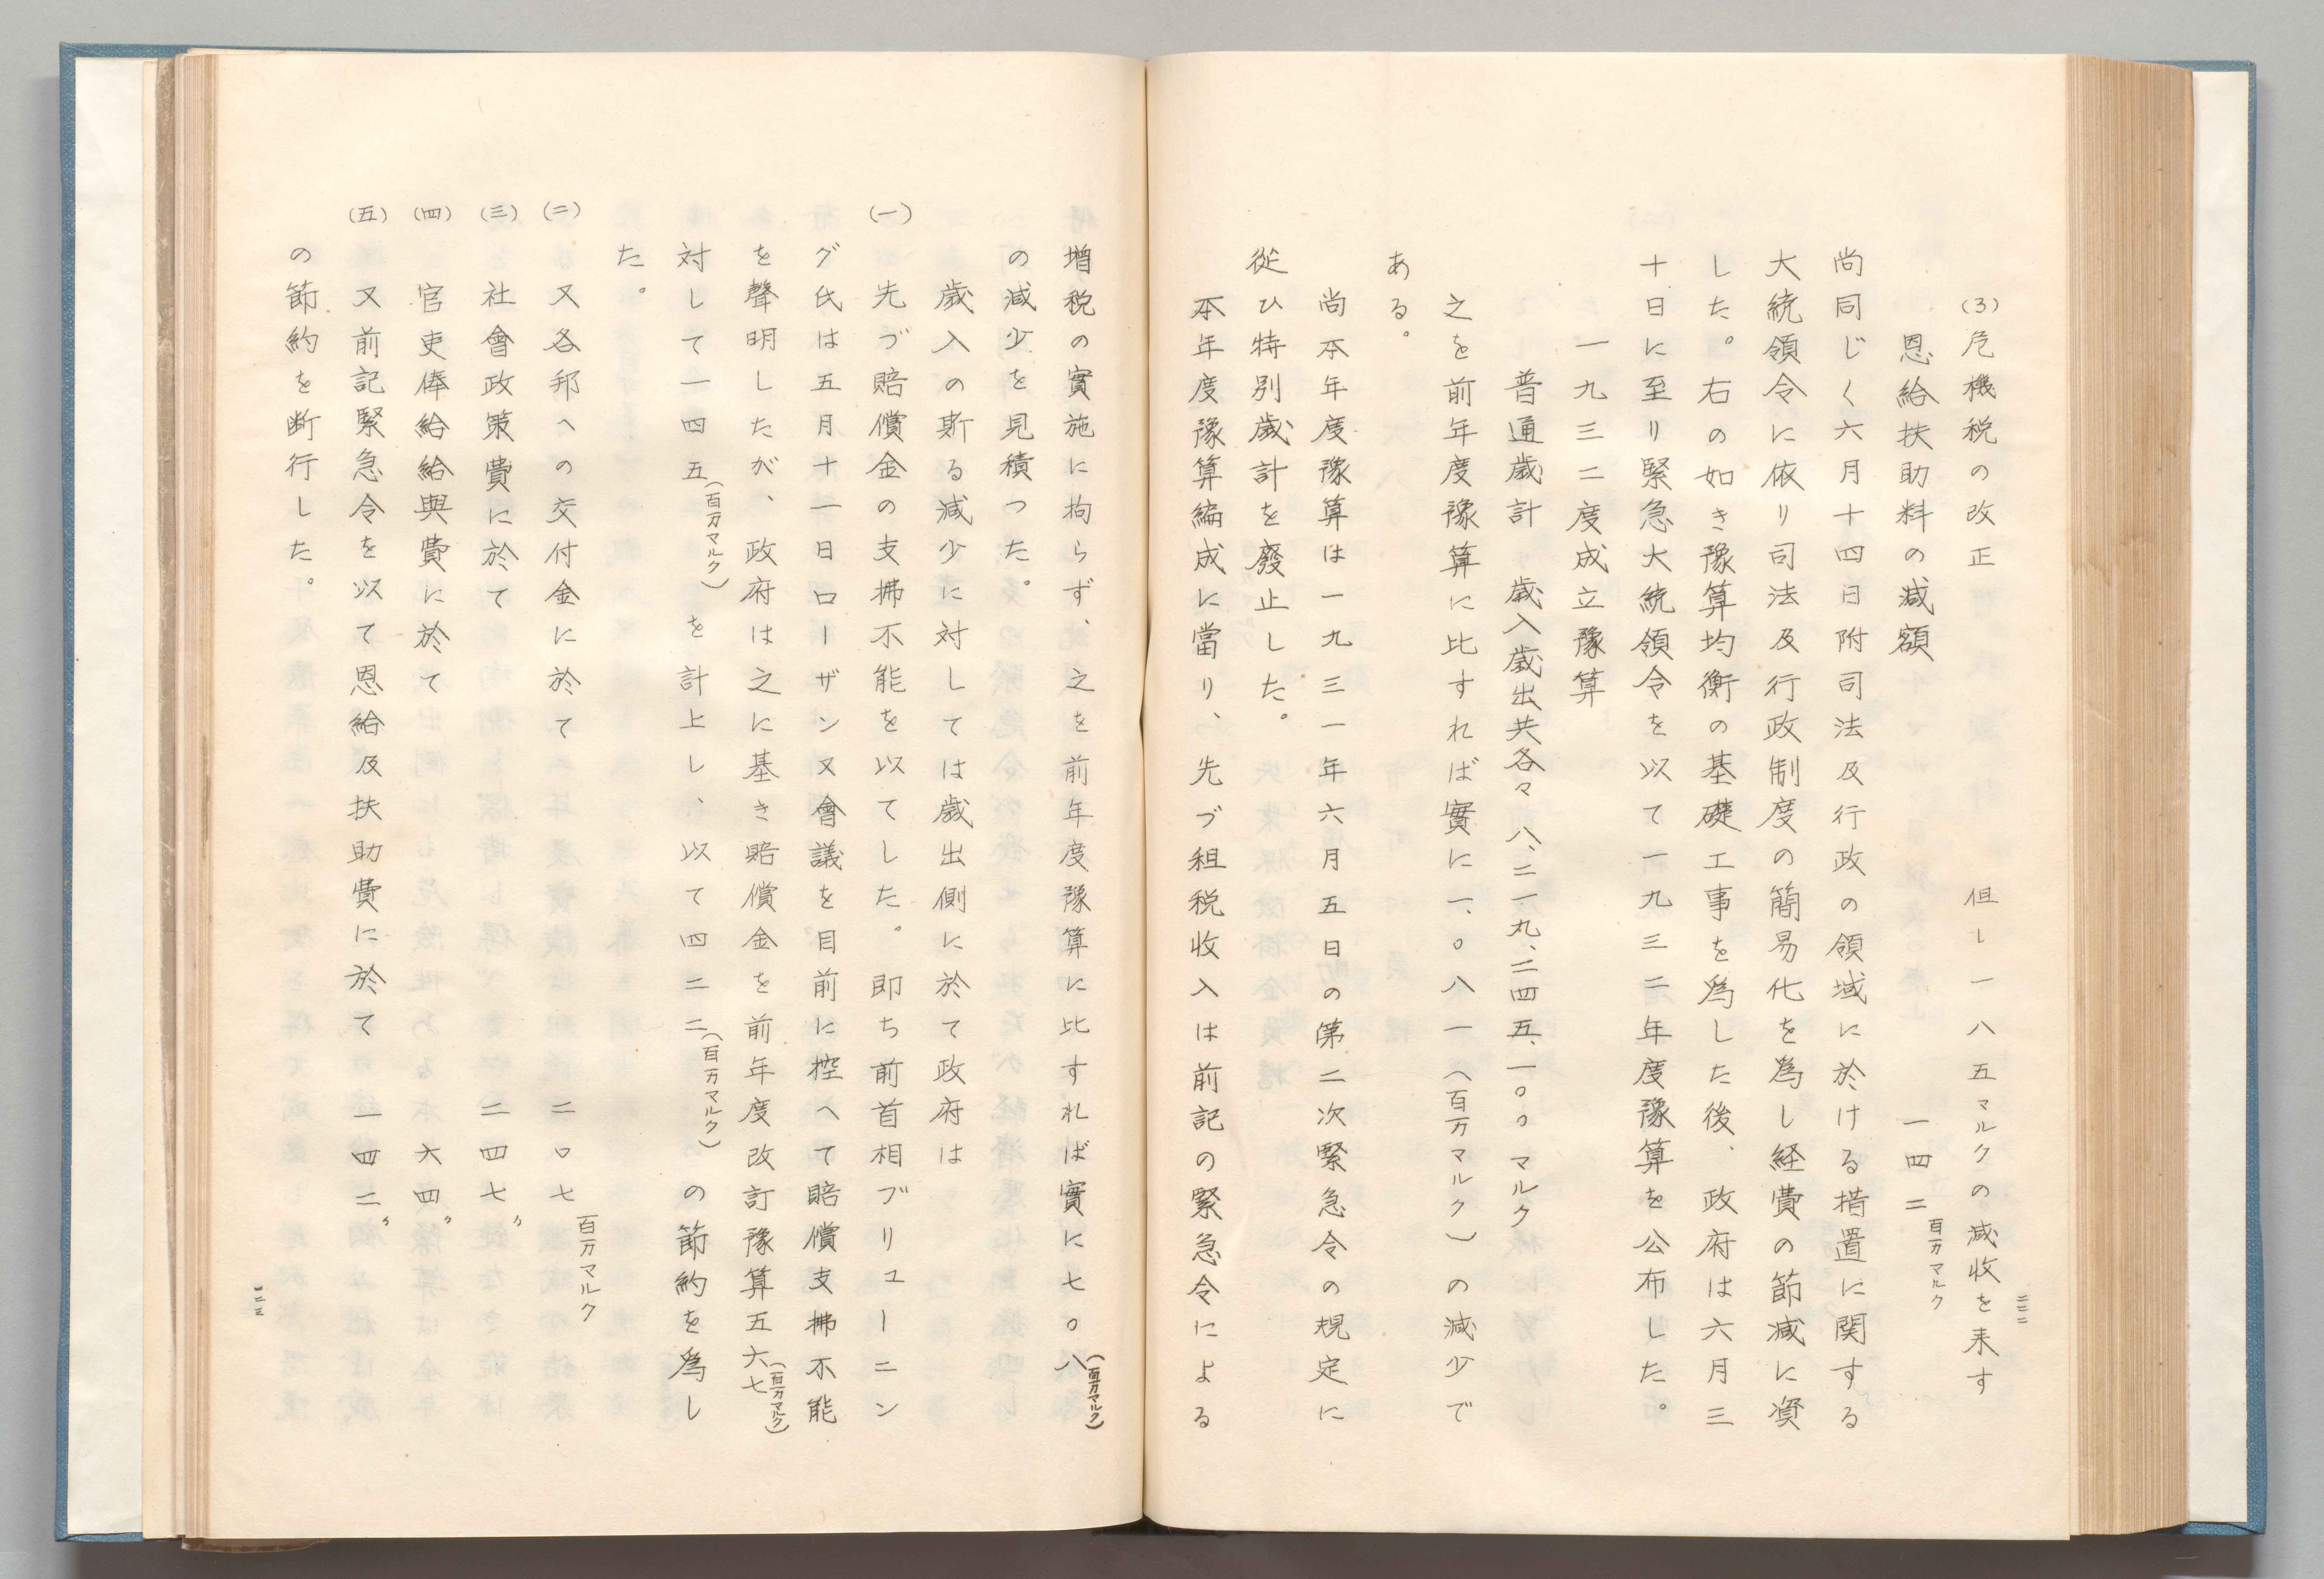 (3)危機税の改正　但し一八五マルクの減收を来す
恩給扶助料の減額　一四二百万マルク
尚同じく六月十四日附司法及行政の領域に於ける措置に関する
大統領令に依り司法及行政制度の簡易化を為し経費の節減に資
した。右の如き豫算均衡の基礎工事を為した後、政府は六月三
十日に至り緊急大統領令を以て一九三二年度豫算を公布した。
一九三二度成立豫算
普通歳計　歳入歳出共各々八、二一九、二四五、一〇〇マルク
之を前年度豫算に比すれば實に一、〇八一(百万マルク)の減少で
ある。
尚本年度豫算は一九三一年六月五日の第二次緊急令の規定に
從ひ特別歳計を廢止した。
本年度豫算編成に當り、先づ租税收入は前記の緊急令による
二二二
増税の實施に拘らず、之を前年度豫算に比すれば實に七〇八(百万マルク)
の減少を見積つた。
歳入の斯る減少に対しては歳出側に於て政府は
(一)先づ賠償金の支拂不能を以てした。即ち前首相ブリューニン
グ氏は五月十一日ローザンヌ會議を目前に控へて賠償支拂不能
を聲明したが、政府は之に基き賠償金を前年度改訂豫算五六七(百万マルク)
対して一四五(百万マルク)を計上し、以て四二二(百万マルク)の節約を為し
た。
(二)又各邦への交付金に於て　二〇七百万マルク
(三)社會政策費に於て　二四七〃
(四)官吏俸給給與費に於て　六四〃
(五)又前記緊急令を以て恩給及扶助費に於て　一四二〃
の節約を断行した。
二二三